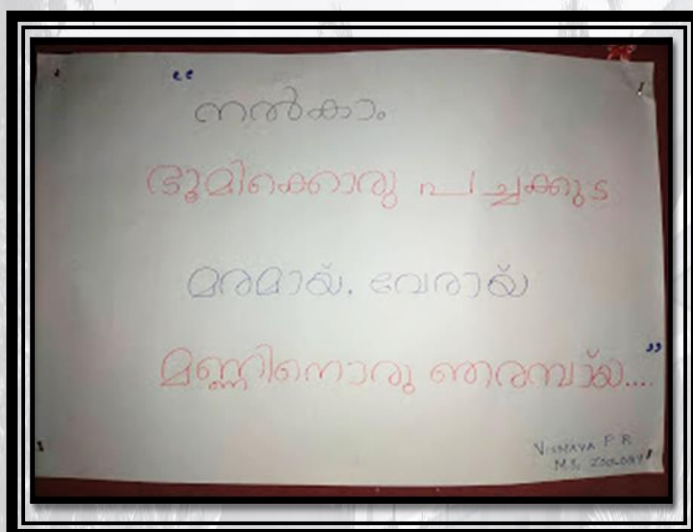 “
നൽകാം
ഭൂമിക്കൊരു പച്ചക്കുട
മരമായ്. വേരായ്
മണ്ണിനൊരു ഞരമ്പായ്....”
VISMAYA P R
MSc ZOOLOGY